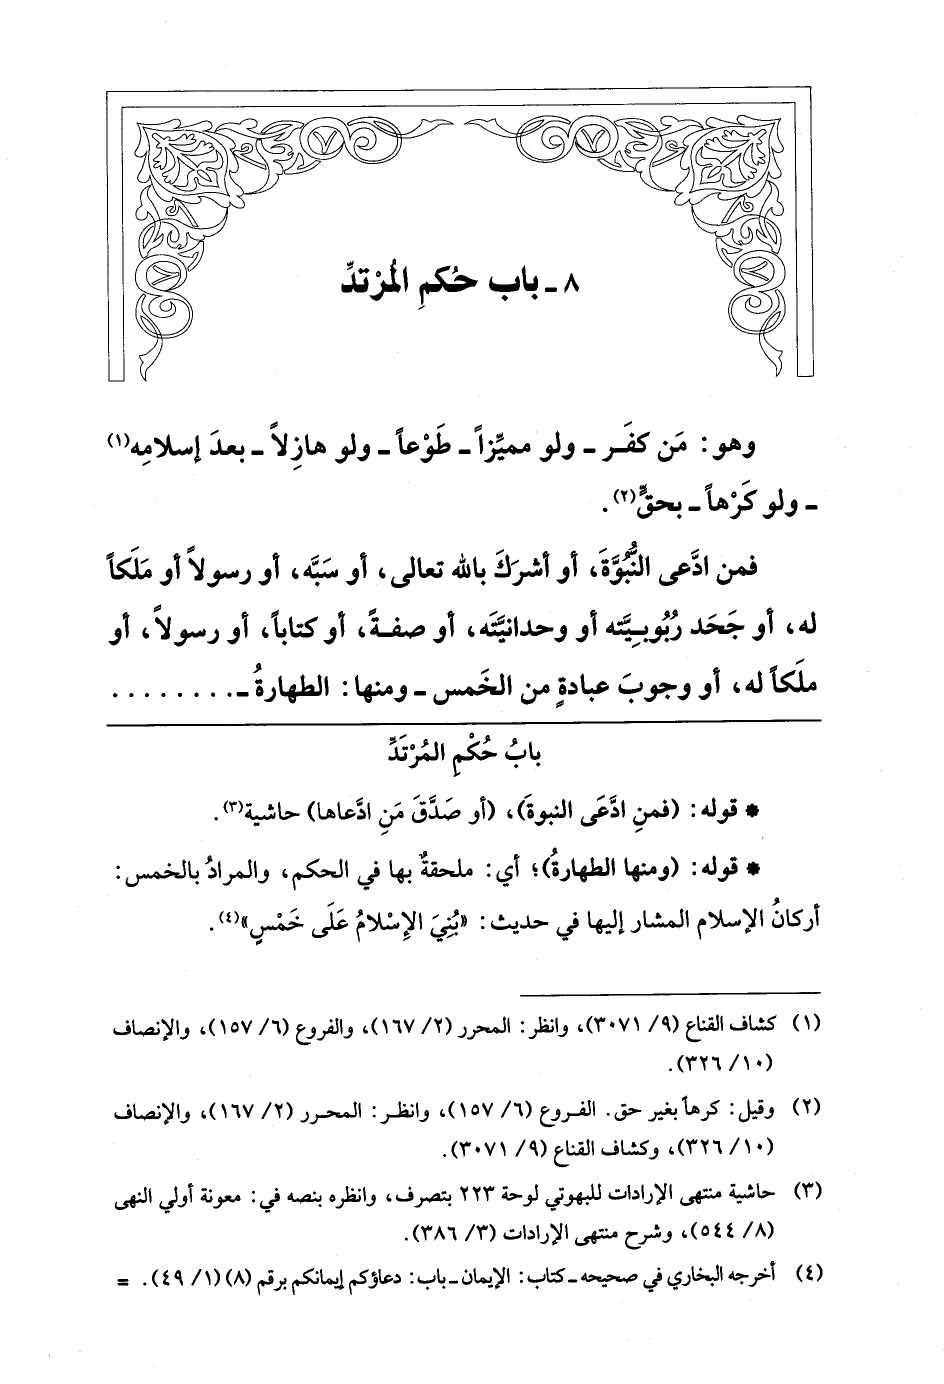 ٨ ـ باب حُكمِ المُرْتدِّ
وهو: مَن كفَـر ـ ولو مميِّزاً ـ طَوْعاً ـ ولو هازِلاً ـ بعدَ إسلامِه(١)
ـ ولو كَرْهاً ـ بحقٍّ(٢).
فمن ادَّعى النُّبُوَّةَ، أو أشرَكَ بالله تعالى، أو سَبَّه، أو رسولاً أو مَلَكاً
له، أو جَحَد رُبُوبـِيَّته أو وحدانيَّتَه، أو صفـةً، أو كتاباً، أو رسولاً، أو
ملَكاً له، أو وجوبَ عبادةٍ من الخَمس ـ ومنها: الطهارةُ ـ. . . . . . . .
بابُ حُكْمِ المُرْتَدِّ
* قوله: (فمنِ ادَّعَى النبوةَ)، (أو صَدَّقَ مَنِ ادَّعاها) حاشية(٣).
* قوله: (ومنها الطهارةُ)؛ أي: ملحقةٌ بها في الحكم، والمرادُ بالخمس:
أركانُ الإسلام المشار إليها في حديث: «بُنِيَ الإِسْلامُ عَلَى خَمْسٍ»(٤).
(١) كشاف القناع (٩/ ٣٠٧١)، وانظر: المحرر (٢/ ١٦٧)، والفروع (٦/ ١٥٧)، والإنصاف
(١٠/ ٣٢٦).
(٢) وقيل: كرهاً بغير حق. الفـروع (٦/ ١٥٧)، وانظـر: المحـرر (٢/ ١٦٧)، والإنصاف
(١٠/ ٣٢٦)، وكشاف القناع (٩/ ٣٠٧١).
(٣) حاشية منتهى الإرادات للبهوتي لوحة ٢٢٣ بتصرف، وانظره بنصه في: معونة أولي النهى
(٨/ ٥٤٤)، وشرح منتهى الإرادات (٣/ ٣٨٦).
(٤) أخرجه البخاري في صحيحه ـ كتاب: الإيمان ـ باب: دعاؤكم إيمانكم برقم (٨) (١/ ٤٩). =